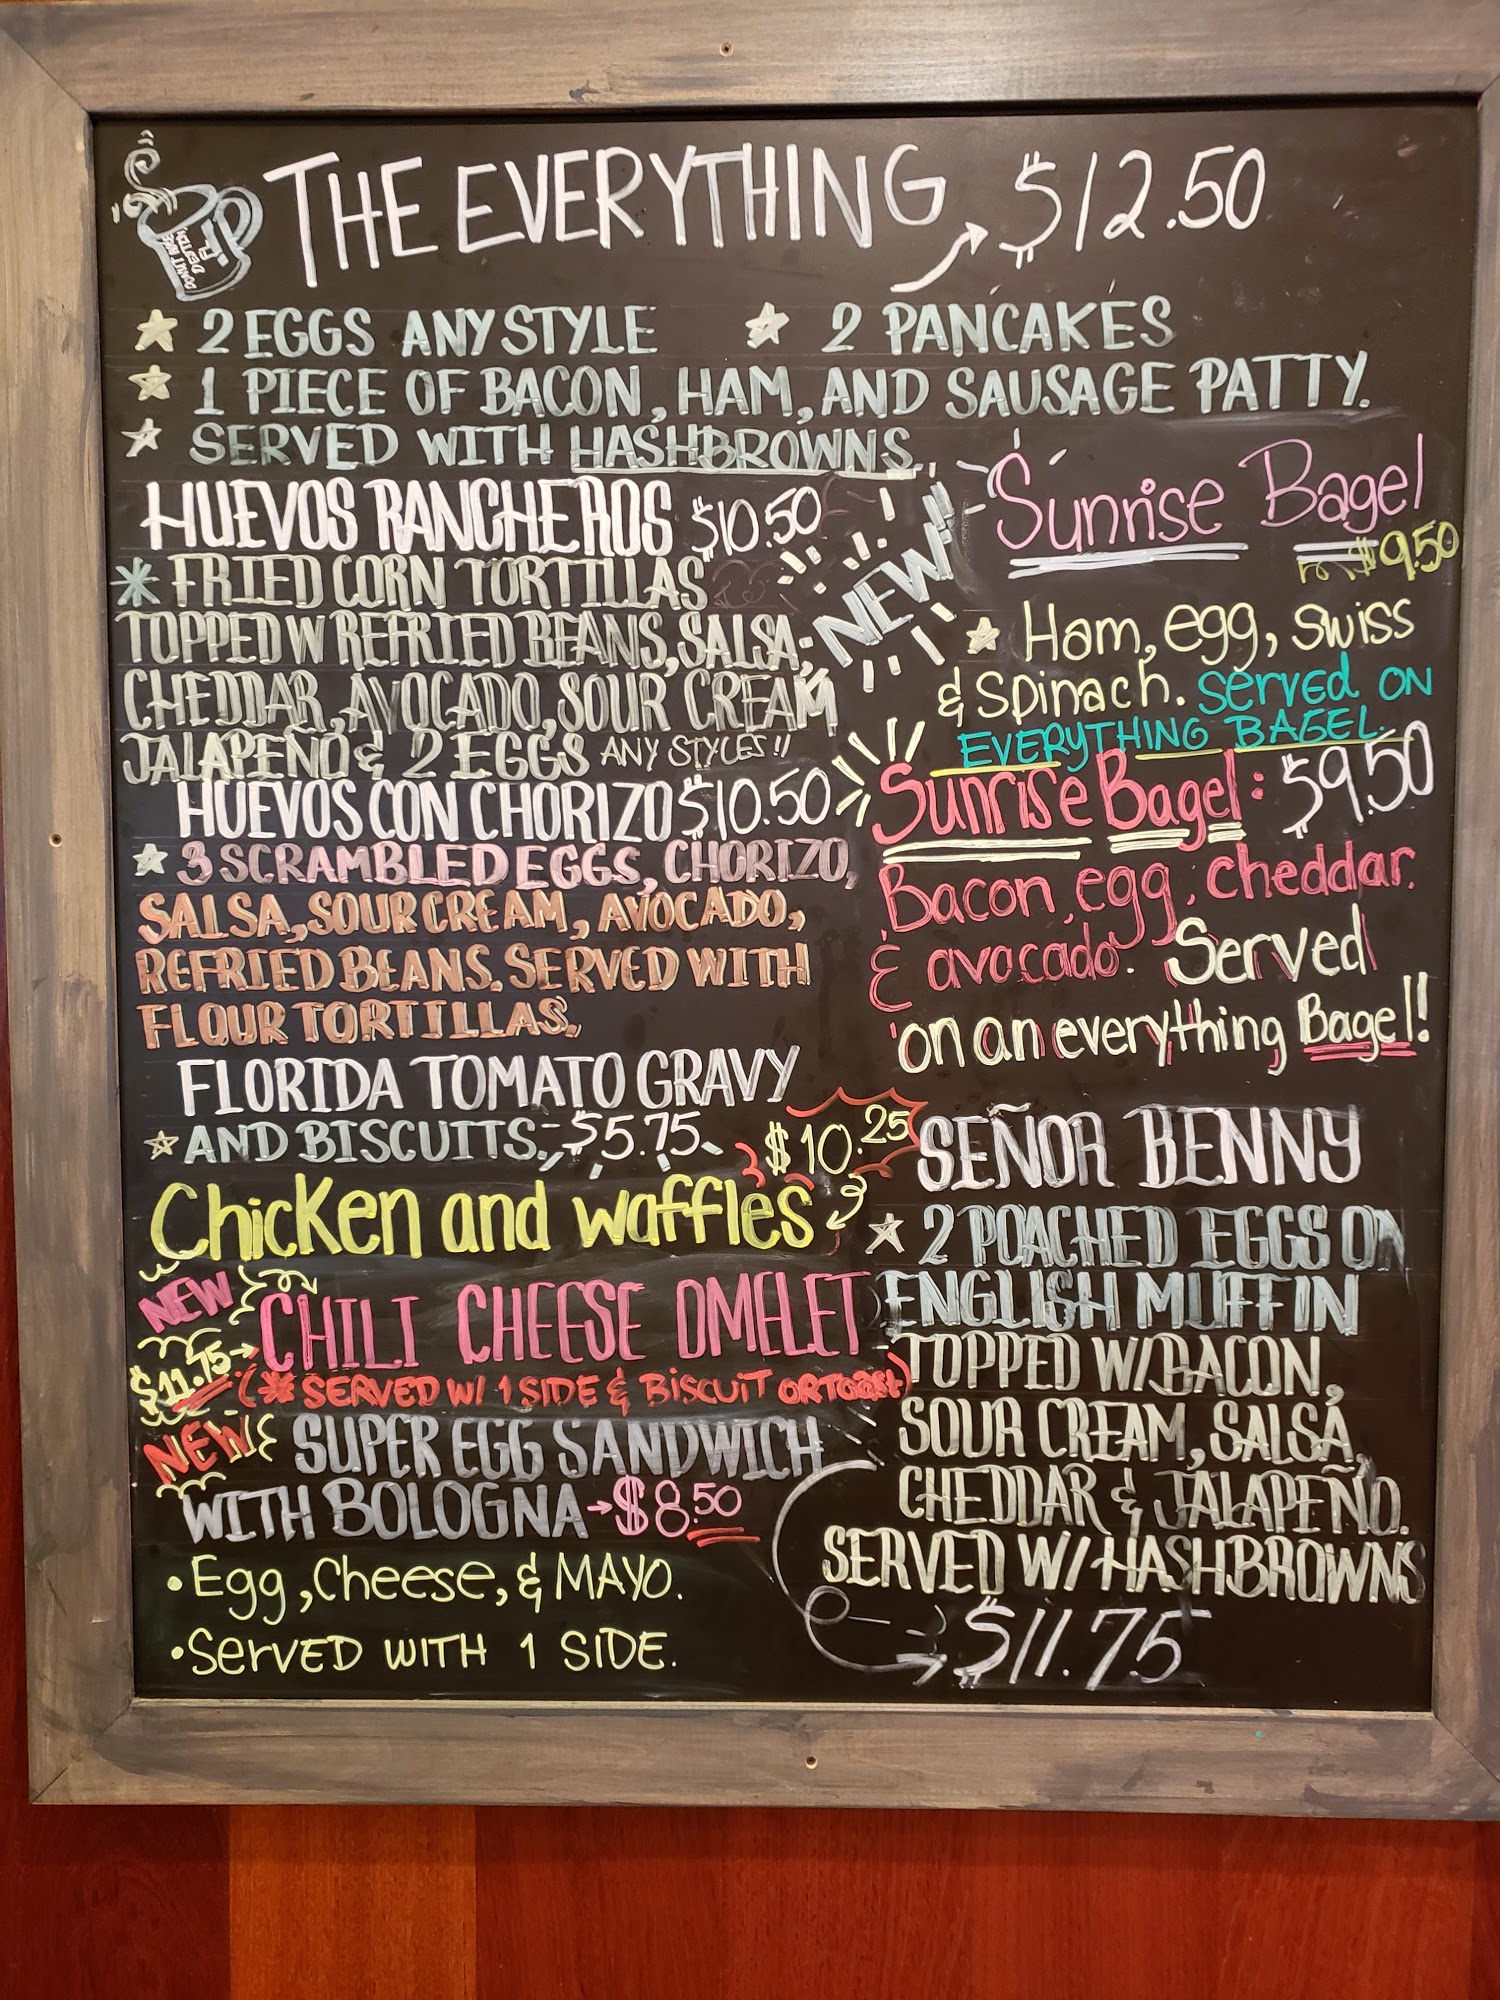 THE EVERYTHING $12.50
2 EGGS ANY STYLE
2 PANCAKES
1 PIECE OF BACON, HAM, AND SAUSAGE PATTY.
SERVED WITH HASHBROWNS.
HUEVOS RANCHEROS $10.50
FRIED CORN TORTILLAS
TOPPED W REFRIED BEANS, SALSA,
CHEDDAR, AVOCADO, SOUR CREAM
JALAPEÑO & 2 EGGS ANY STYLES!!
HUEVOS CON CHORIZO $10.50
3 SCRAMBLED EGGS, CHORIZO,
SALSA, SOUR CREAM, AVOCADO,
REFRIED BEANS. SERVED WITH
FLOUR TORTILLAS.
FLORIDA TOMATO GRAVY
AND BISCUITS. $5.75
$10.25
Chicken and waffles
NEW
$11.75
CHILI CHEESE OMELET
(* SERVED W/ 1 SIDE & BISCUIT OR TOAST)
NEW
SUPER EGG SANDWICH
WITH BOLOGNA $8.50
• Egg, Cheese, & MAYO.
• SERVED WITH 1 SIDE.
NEW!
Sunrise Bagel
$9.50
Ham, egg, swiss
& spinach. Served ON
EVERYTHING BAGEL.
Sunrise Bagel: $9.50
Bacon, egg, cheddar.
& avocado. Served
on an everything Bagel!
SEÑOR BENNY
2 POACHED EGGS ON
ENGLISH MUFFIN
TOPPED W/ BACON,
SOUR CREAM, SALSA,
CHEDDAR & JALAPEÑO.
SERVED W/ HASHBROWNS
$11.75